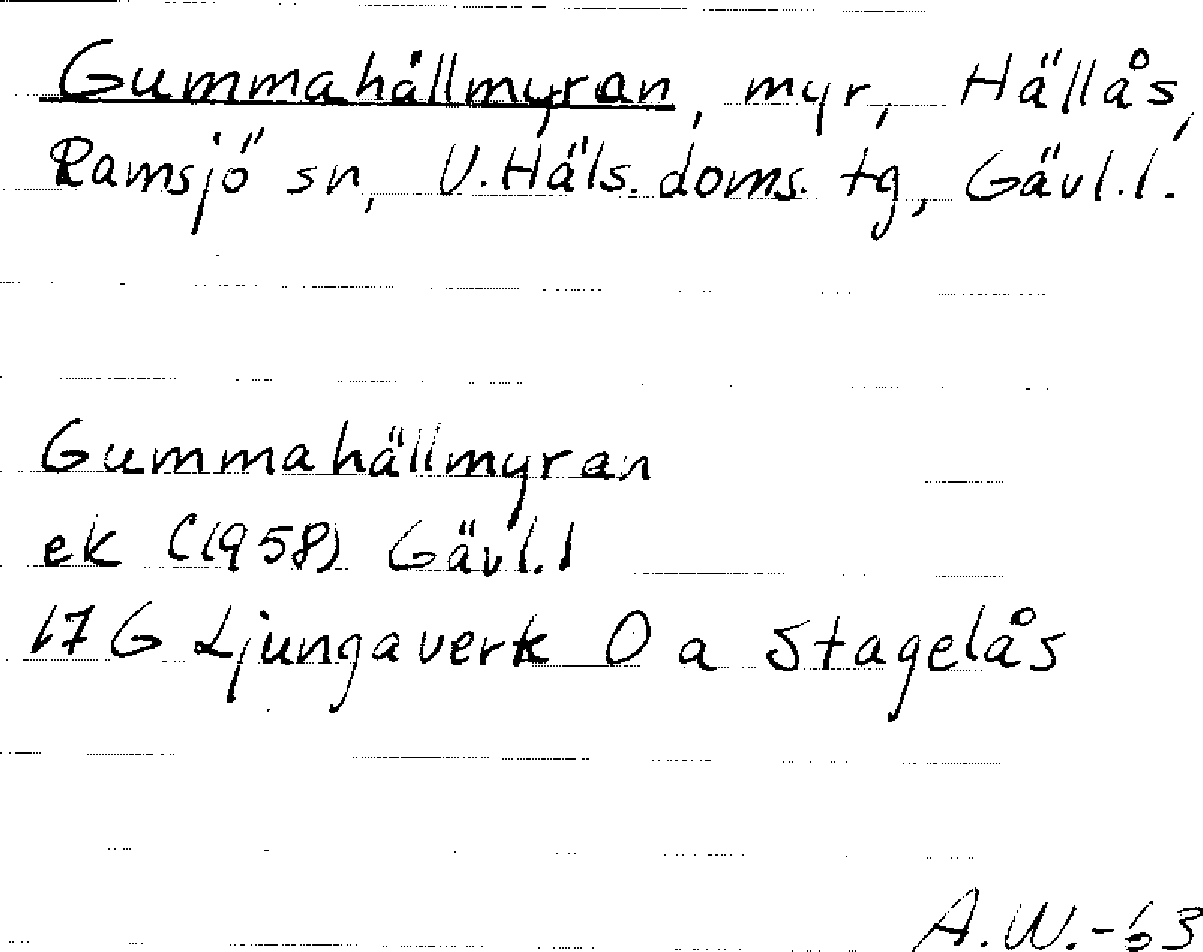 Gummahällmyran, myr, Hällås,
Ramsjö sn, V.Häls.doms.tg, Gävl.l.
Gummahällmyran
ek C(1958) Gävl.l
17G Ljungaverk 0 a Stagelås
A.W.-63